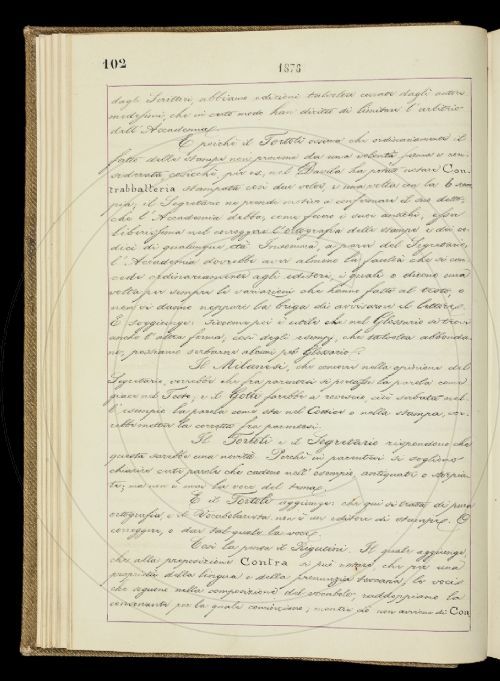 102
1876
dagli Scrittori, abbiamo edizioni talvolta curate dagli autori
medesimi, che in certo modo han diritto di limitare l'arbitrio
dell'Accademia.
E perchè il Tortoli osserva che ordinariamente il
fatto della stampa non proviene da una volontà ferma e con-
siderata, cosicchè, per es., nel Davila ha potuto notare Con-
trabbatteria stampata così due volte, e una volta con la
pia; il Segretario ne prende motivo a confermare il suo detto,
che l'Accademia debba, come fecero i suoi antichi, essere
liberissima nel correggere l'ortografia delle stampe e dei co-
dici di qualunque età. Insomma, a parer del Segretario,
l'Accademia dovrebbe aver almeno la facoltà che si con-
cede ordinariamente agli editori, i quali o dicono una
volta per sempre le variazioni che hanno fatto al testo, o
non si danno neppure la briga di avvisarne il lettore.
E soggiunge: è utile che nel Glossario si trovi
anche l'altra forma; così degli esempj, che talvolta abbonda-
no, possiamo serbarne alcuni pel Glossario.
Il Milanesi, che conviene nella opinione del
Segretario, vorrebbe che fra parentesi si portasse la parola come
giace nel Testo, e il Gotti farebbe a rovescio, cioè serbato nel-
l'esempio la parola come sta nel Codice o nella stampa, vor-
rebbe mettere la corretta fra parentesi.
Il Tortoli e il Segretario rispondono che
questa sarebbe una novità. Perchè in parentesi si sogliono
chiarire certe parole che cadono nell'esempio, antiquate o storpia-
te; ma non è mai la voce del tema.
E il Tortoli aggiunge: che qui si tratta di pura
ortografia, e il Vocabolarista non è un editore di stampe. O
correggere, o dar tal quale la voce.
Così la pensa il Rigutini. Il quale aggiunge,
che alla preposizione Contra si può notare, che per una
proprietà della lingua e della pronunzia toscana, le voci
che seguono nella composizione del vocabolo, raddoppiano la
consonante per la quale cominciano; mentre ciò non avviene di Con